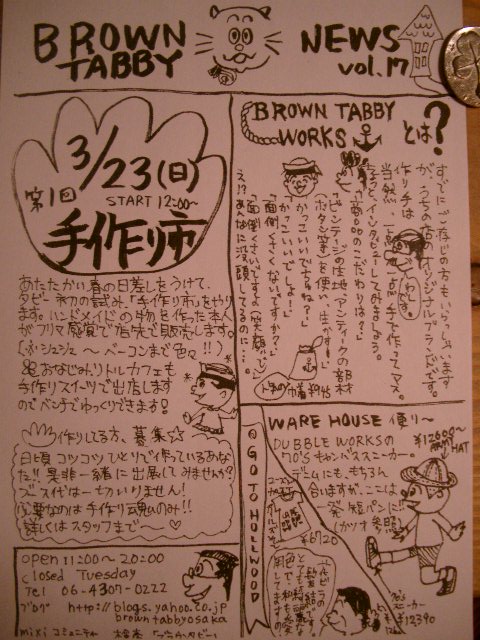 BROWN
TABBY
NEWS
vol.17
3/23(日)
第1回
START 12:00~
手作り市
あたたかい春の日差しをうけて、
タビー初の試み、「手作り市」をやり
ます。ハンドメイドの物を作った本人
がフリマ感覚で店先で販売します。
~ベーコンまで色々!!)
おなじみリトルカフェも
手作りスイーツで出店します
のでベンチでゆっくりできます!
作りしてる方、募集☆
日頃コツコツひとりで作っているあな
た!!是非一緒に出展してみませんか?
ブース代は一切いりません!
必要なのは手作り魂のみ!!
詳しくはスタッフまで~♡
open 11:00~20:00
closed Tuesday
Tel 06-4307-0222
ブログ http://blogs.yahoo.co.jp
browntabbyosaka
mixi コミュニティ
BROWN TABBY
WORKS
とは?
すでにご存じの方もいらっしゃいます
が、うちの店のオリジナルブランドです。
作り手は
わしです。
当然
手で作ってマス。
ちょっとインタビューしてみましょう。
「商品のこだわりは?」
「ビンテージの生地、アンティークの部材
(ボタン等)を使い、生かす!」
「かっこいいですね?」
「かっこいいでしょー」
「面倒くさくないですか?」
「面倒くさいですよ(笑顔)」
え!?あんなに没頭してるのに…。
WARE HOUSE 便り~
DUBBLE WORKSの
70'Sキャンバススニーカー。
デニムにも、もちろん
合いますが、ここは
一発短パンに!!
¥12600~
ARMY
HAT
GO TO HOLLYWOOD
¥6720
スニーカー
¥12390